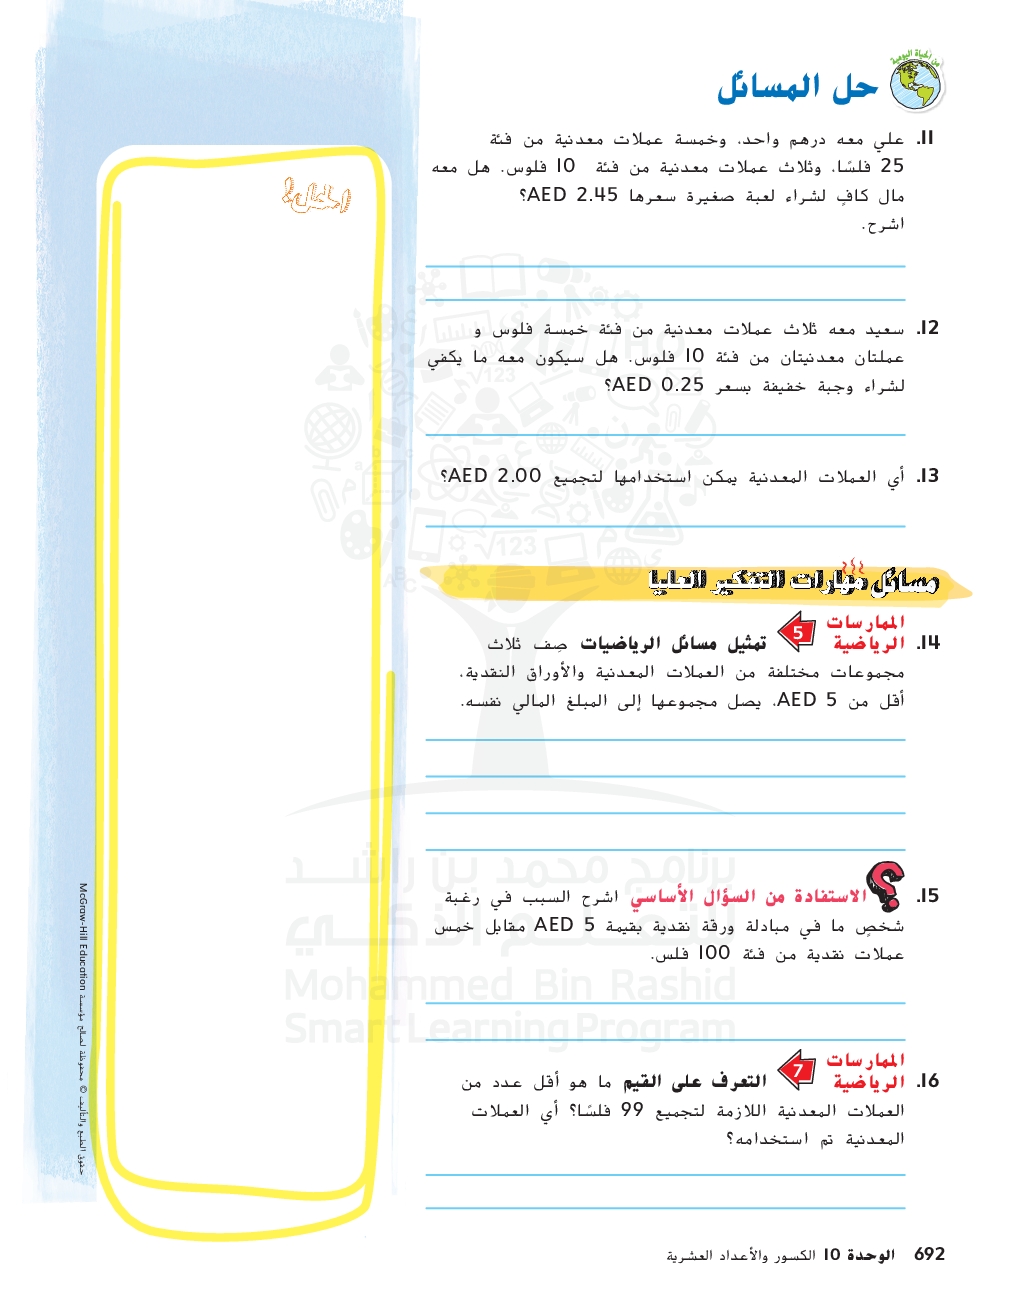 من الحياة اليومية
حل المسائل
11. علي معه درهم واحد، وخمسة عملات معدنية من فئة
25 فلسًا، وثلاث عملات معدنية من فئة 10 فلوس. هل معه
مال كافٍ لشراء لعبة صغيرة سعرها AED 2.45؟
اشرح.
12. سعيد معه ثلاث عملات معدنية من فئة خمسة فلوس و
عملتان معدنيتان من فئة 10 فلوس. هل سيكون معه ما يكفي
لشراء وجبة خفيفة بسعر AED 0.25؟
13. أي العملات المعدنية يمكن استخدامها لتجميع AED 2.00؟
مسائل مهارات التفكير العليا
الممارسات
14. الرياضية 5 تمثيل مسائل الرياضيات صِف ثلاث
مجموعات مختلفة من العملات المعدنية والأوراق النقدية،
أقل من AED 5، يصل مجموعها إلى المبلغ المالي نفسه.
15. الاستفادة من السؤال الأساسي اشرح السبب في رغبة
شخصٍ ما في مبادلة ورقة نقدية بقيمة AED 5 مقابل خمس
عملات نقدية من فئة 100 فلس.
الممارسات
16. الرياضية 7 التعرف على القيم ما هو أقل عدد من
العملات المعدنية اللازمة لتجميع 99 فلسًا؟ أي العملات
المعدنية تم استخدامه؟
692 الوحدة 10 الكسور والأعداد العشرية
الحل!
حقوق الطبع والتأليف © محفوظة لصالح مؤسسة McGraw-Hill Education
برنامج محمد بن راشد
للتعلم الذكي
Mohammed Bin Rashid
Smart Learning Program